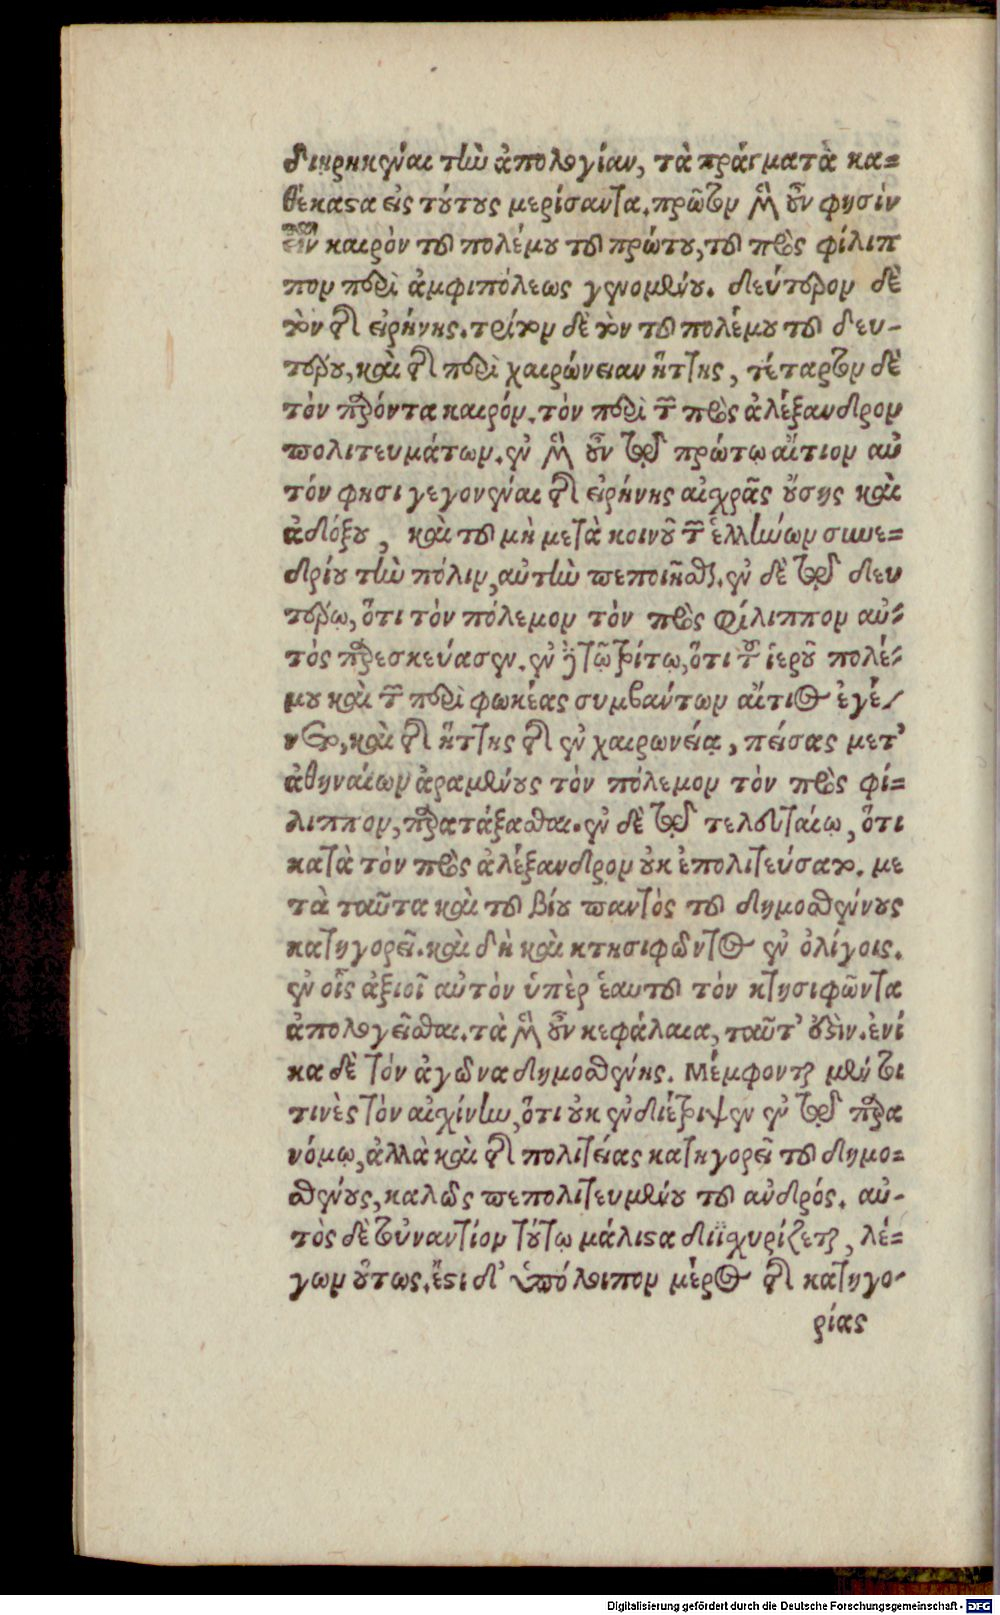 διῃρηκέναι τὴν ἀπολογίαν, τὰ πράγματα κα=
θέκαστα εἰς τούτους μερίσαντα. πρῶτον μὲν οὖν φησὶν
καιρὸν τοῦ πολέμου τοῦ πρώτου, τοῦ πρὸς φίλιπ
πον περὶ ἀμφιπόλεως γενομένου. δεύτερον δὲ
τὸν τῆς εἰρήνης. τρίτον δὲ τὸν τοῦ πολέμου τοῦ δευ-
τέρου, καὶ τῆς περὶ χαιρώνειαν ἥττης, τέταρτον δὲ
τὸν παρόντα καιρόν. τὸν περὶ τῶν πρὸς ἀλέξανδρον
πολιτευμάτων. ἐν μὲν οὖν τῷ πρώτῳ αἴτιον αὐ
τόν φησι γεγονέναι τῆς εἰρήνης αἰχρᾶς οὔσης καὶ
ἀδόξου, καὶ τοῦ μὴ μετὰ κοινοῦ τῶν ἑλλήνων συνε=
δρίου τὴν πόλιν, αὐτὴν πεποιῆσθαι. ἐν δὲ τῷ δευ
τέρῳ, ὅτι τὸν πόλεμον τὸν πρὸς φίλιππον αὐ=
τὸς παρεσκεύασεν. ἐν δὲ τῷ τρίτῳ, ὅτι τοῦ ἱεροῦ πολέ=
μου καὶ τῶν περὶ φωκέας συμβάντων αἴτιος ἐγέ-
νετο, καὶ τῆς ἥττης τῆς ἐν χαιρωνείᾳ, πείσας μετ'
ἀθηναίων ἀραμένους τὸν πόλεμον τὸν πρὸς φί=
λιππον, παρατάξασθαι. ἐν δὲ τῷ τελευταίῳ, ὅτι
κατὰ τὸν πρὸς ἀλέξανδρον οὐκ ἐπολιτεύσατο. με
τὰ ταῦτα καὶ τοῦ βίου παντὸς τοῦ δημοσθένους
κατηγορεῖ. καὶ δὴ καὶ κτησιφῶντος ἐν ὀλίγοις.
ἐν οἷς ἀξιοῖ αὐτὸν ὑπὲρ ἑαυτοῦ τὸν κτησιφῶντα
ἀπολογεῖσθαι. τὰ μὲν οὖν κεφάλαια, ταῦτ' ἐστὶν. ἐνί
κα δὲ τόν ἀγῶνα δημοσθένης. Μέμφονται μέν τι
τινὲς τὸν αἰχίνην, ὅτι οὐκ ἐνδιέτριψεν ἐν τῷ παρα
νόμῳ, ἀλλὰ καὶ τῆς πολιτείας κατηγορεῖ τοῦ δημο=
σθένους, καλῶς πεπολιτευμένου τοῦ ανδρός. αὐ-
τὸς δὲ τὐναντίον τούτῳ μάλιστα διϊχυρίζεται, λέ=
γων οὕτως. ἔστι δ' ὑπόλοιπον μέρος τῆς κατηγο-
ρίας
Digitalisierung gefördert durch die Deutsche Forschungsgemeinschaft - DFG